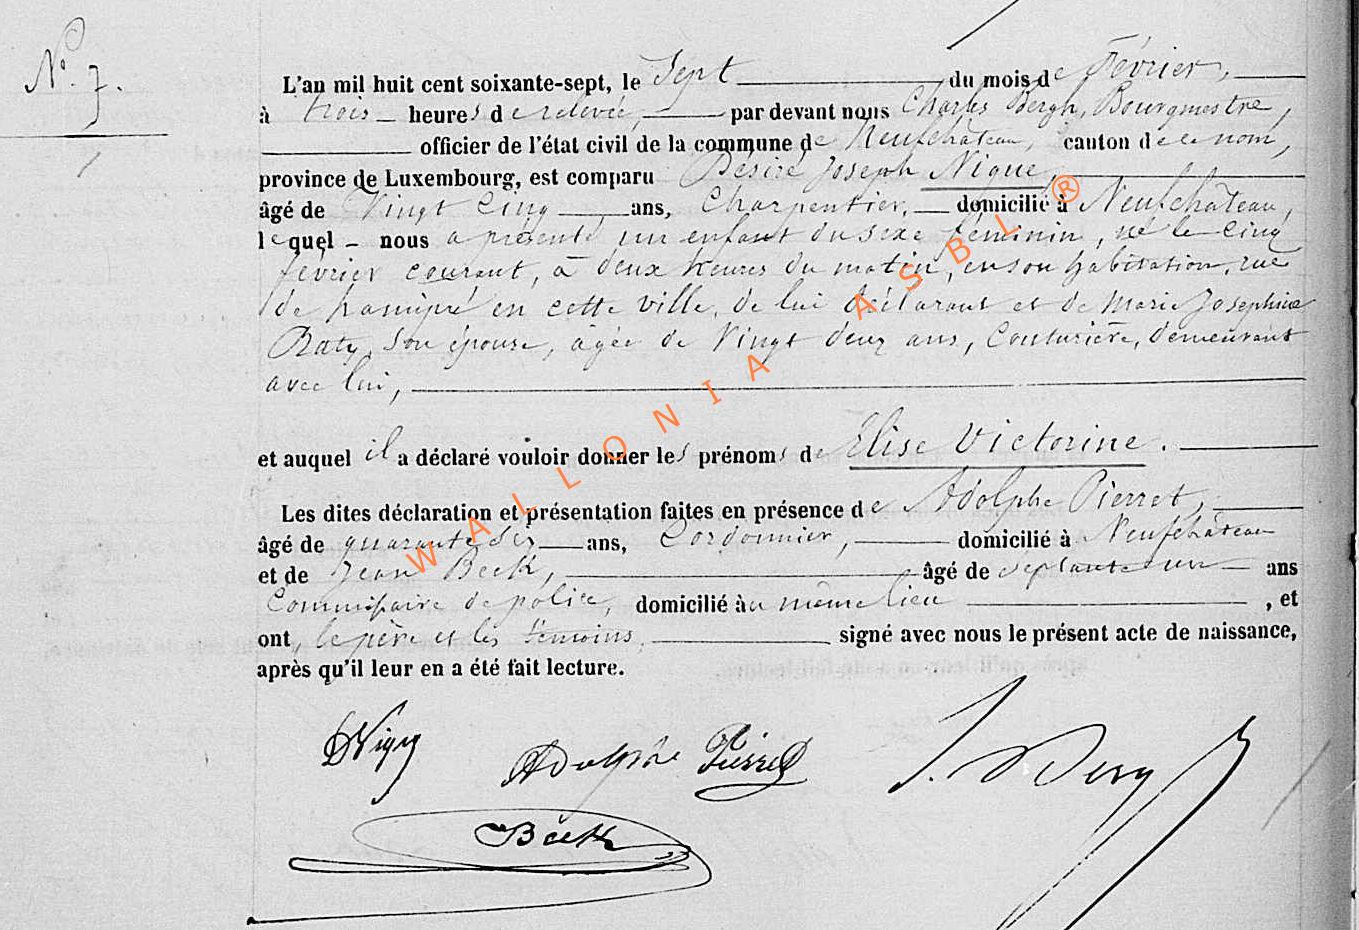 N.° 7.
L'an mil huit cent soixante-sept, le Sept du mois de Février,
à trois heures de relevée, par devant nous Charles Bergh, Bourgmestre,
officier de l'état civil de la commune de Neufchâteau, canton de ce nom,
province de Luxembourg, est comparu Désiré Joseph Nigue,
âgé de Vingt Cinq ans, Charpentier, domicilié à Neufchâteau,
lequel nous a présenté un enfant du sexe féminin, né le cinq
février courant, à deux heures du matin, en son habitation, rue
de en cette ville, de lui déclarant et de Marie Josephine
Raty, son épouse, agée de Vingt deux ans, Couturière, demeurant
avec lui,
et auquel il a déclaré vouloir donner les prénoms de Elise Victorine.
Les dites déclaration et présentation faites en présence de Adolphe Pierret,
âgé de quarante six ans, Cordonnier, domicilié à Neufchâteau
et de Jean Beck, âgé de septante un ans
Commissaire de police, domicilié au même lieu , et
ont, le père et les témoins, signé avec nous le présent acte de naissance,
après qu'il leur en a été fait lecture.
Adolphe Pierret
Beck
WALLONIA ASBL ®